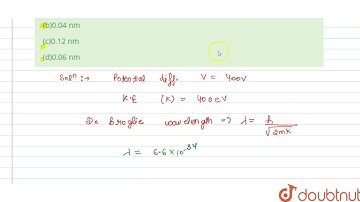 (b)0.04 nm
(c)0.12 nm
(d)0.06 nm
Solⁿ :→ Potential diff. V = 400V
K.E (K) = 400eV
De Broglie wavelength => λ = h / √2mK
λ = 6.6 × 10⁻³⁴
doubtnut